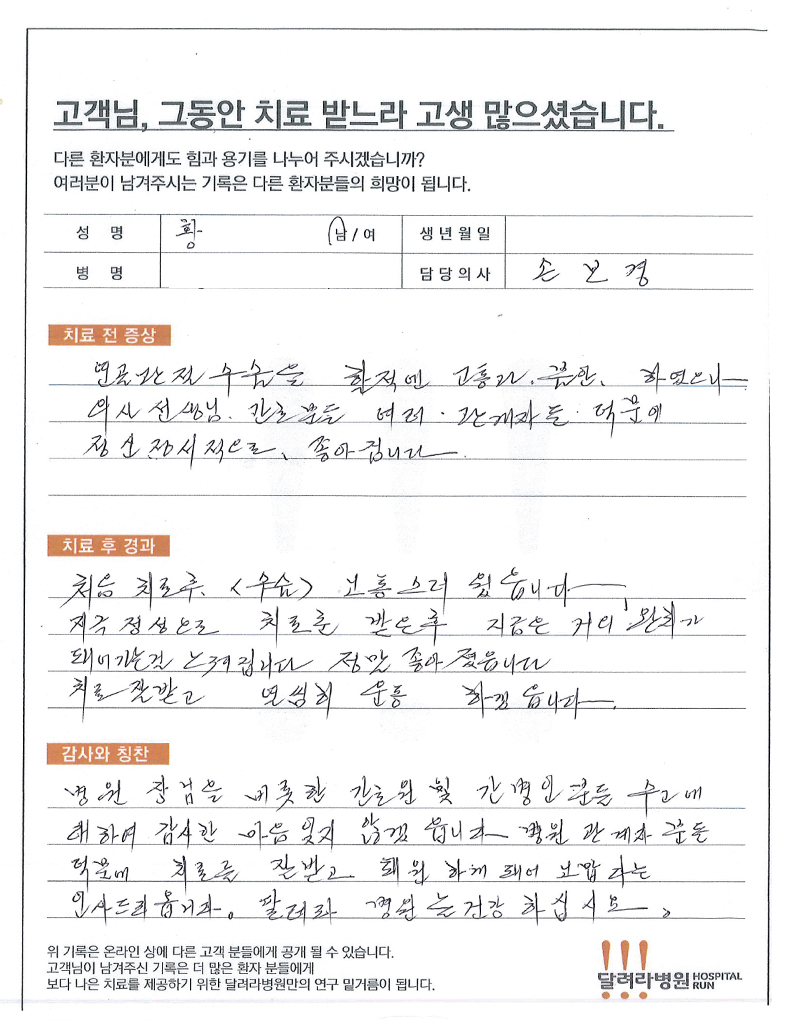 고객님, 그동안 치료 받느라 고생 많으셨습니다.
다른 환자분에게도 힘과 용기를 나누어 주시겠습니까?
여러분이 남겨주시는 기록은 다른 환자분들의 희망이 됩니다.
성 명 황 남 / 여 생년월일
병 명 담당의사 손 보 경
치료 전 증상
연골 관절 수숨을 할적엔 고통과. 불안. 하였으나
의사 선생님. 간호분들 여러. 관계자들. 덕분에
정신 정서적으로, 좋아집니다.
치료 후 경과
처음 치료후. <수숨> 고통스러 웠읍니다
지극정성으로 치료를 받은후 지금은 거의 완화가
돼어가는걸 느껴집니다 정말 좋아졌읍니다
치료 잘받고 열씸히 운동 하겠읍니다.
감사와 칭찬
병원 장님을 비롯한 간호원 및 간병인분들 수고에
대하여 감사한 마음 잊지 않겠읍니다 병원 관계자분들
덕분에 치료를 잘받고 퇴원 하게 돼어 고맙다는
인사드리옵니다. 달려라 병원 늘 건강하십시요.
위 기록은 온라인 상에 다른 고객 분들에게 공개 될 수 있습니다.
고객님이 남겨주신 기록은 더 많은 환자 분들에게
보다 나은 치료를 제공하기 위한 달려라병원만의 연구 밑거름이 됩니다.
달려라병원 HOSPITAL RUN